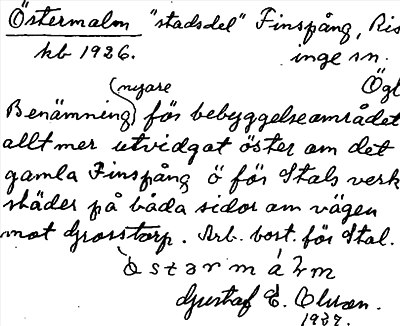 Östermalm "stadsdel" Finspång, Ris
kb 1926. inge sn.
(nyare Ögl
Benämning) för bebyggelseområdet
allt mer utvidgat öster om det
gamla Finspång ö för Stals verk
städer på båda sidor om vägen
mot Grostorp. Arb. bost. för Stal.
Gustaf E. Olsson.
1937.